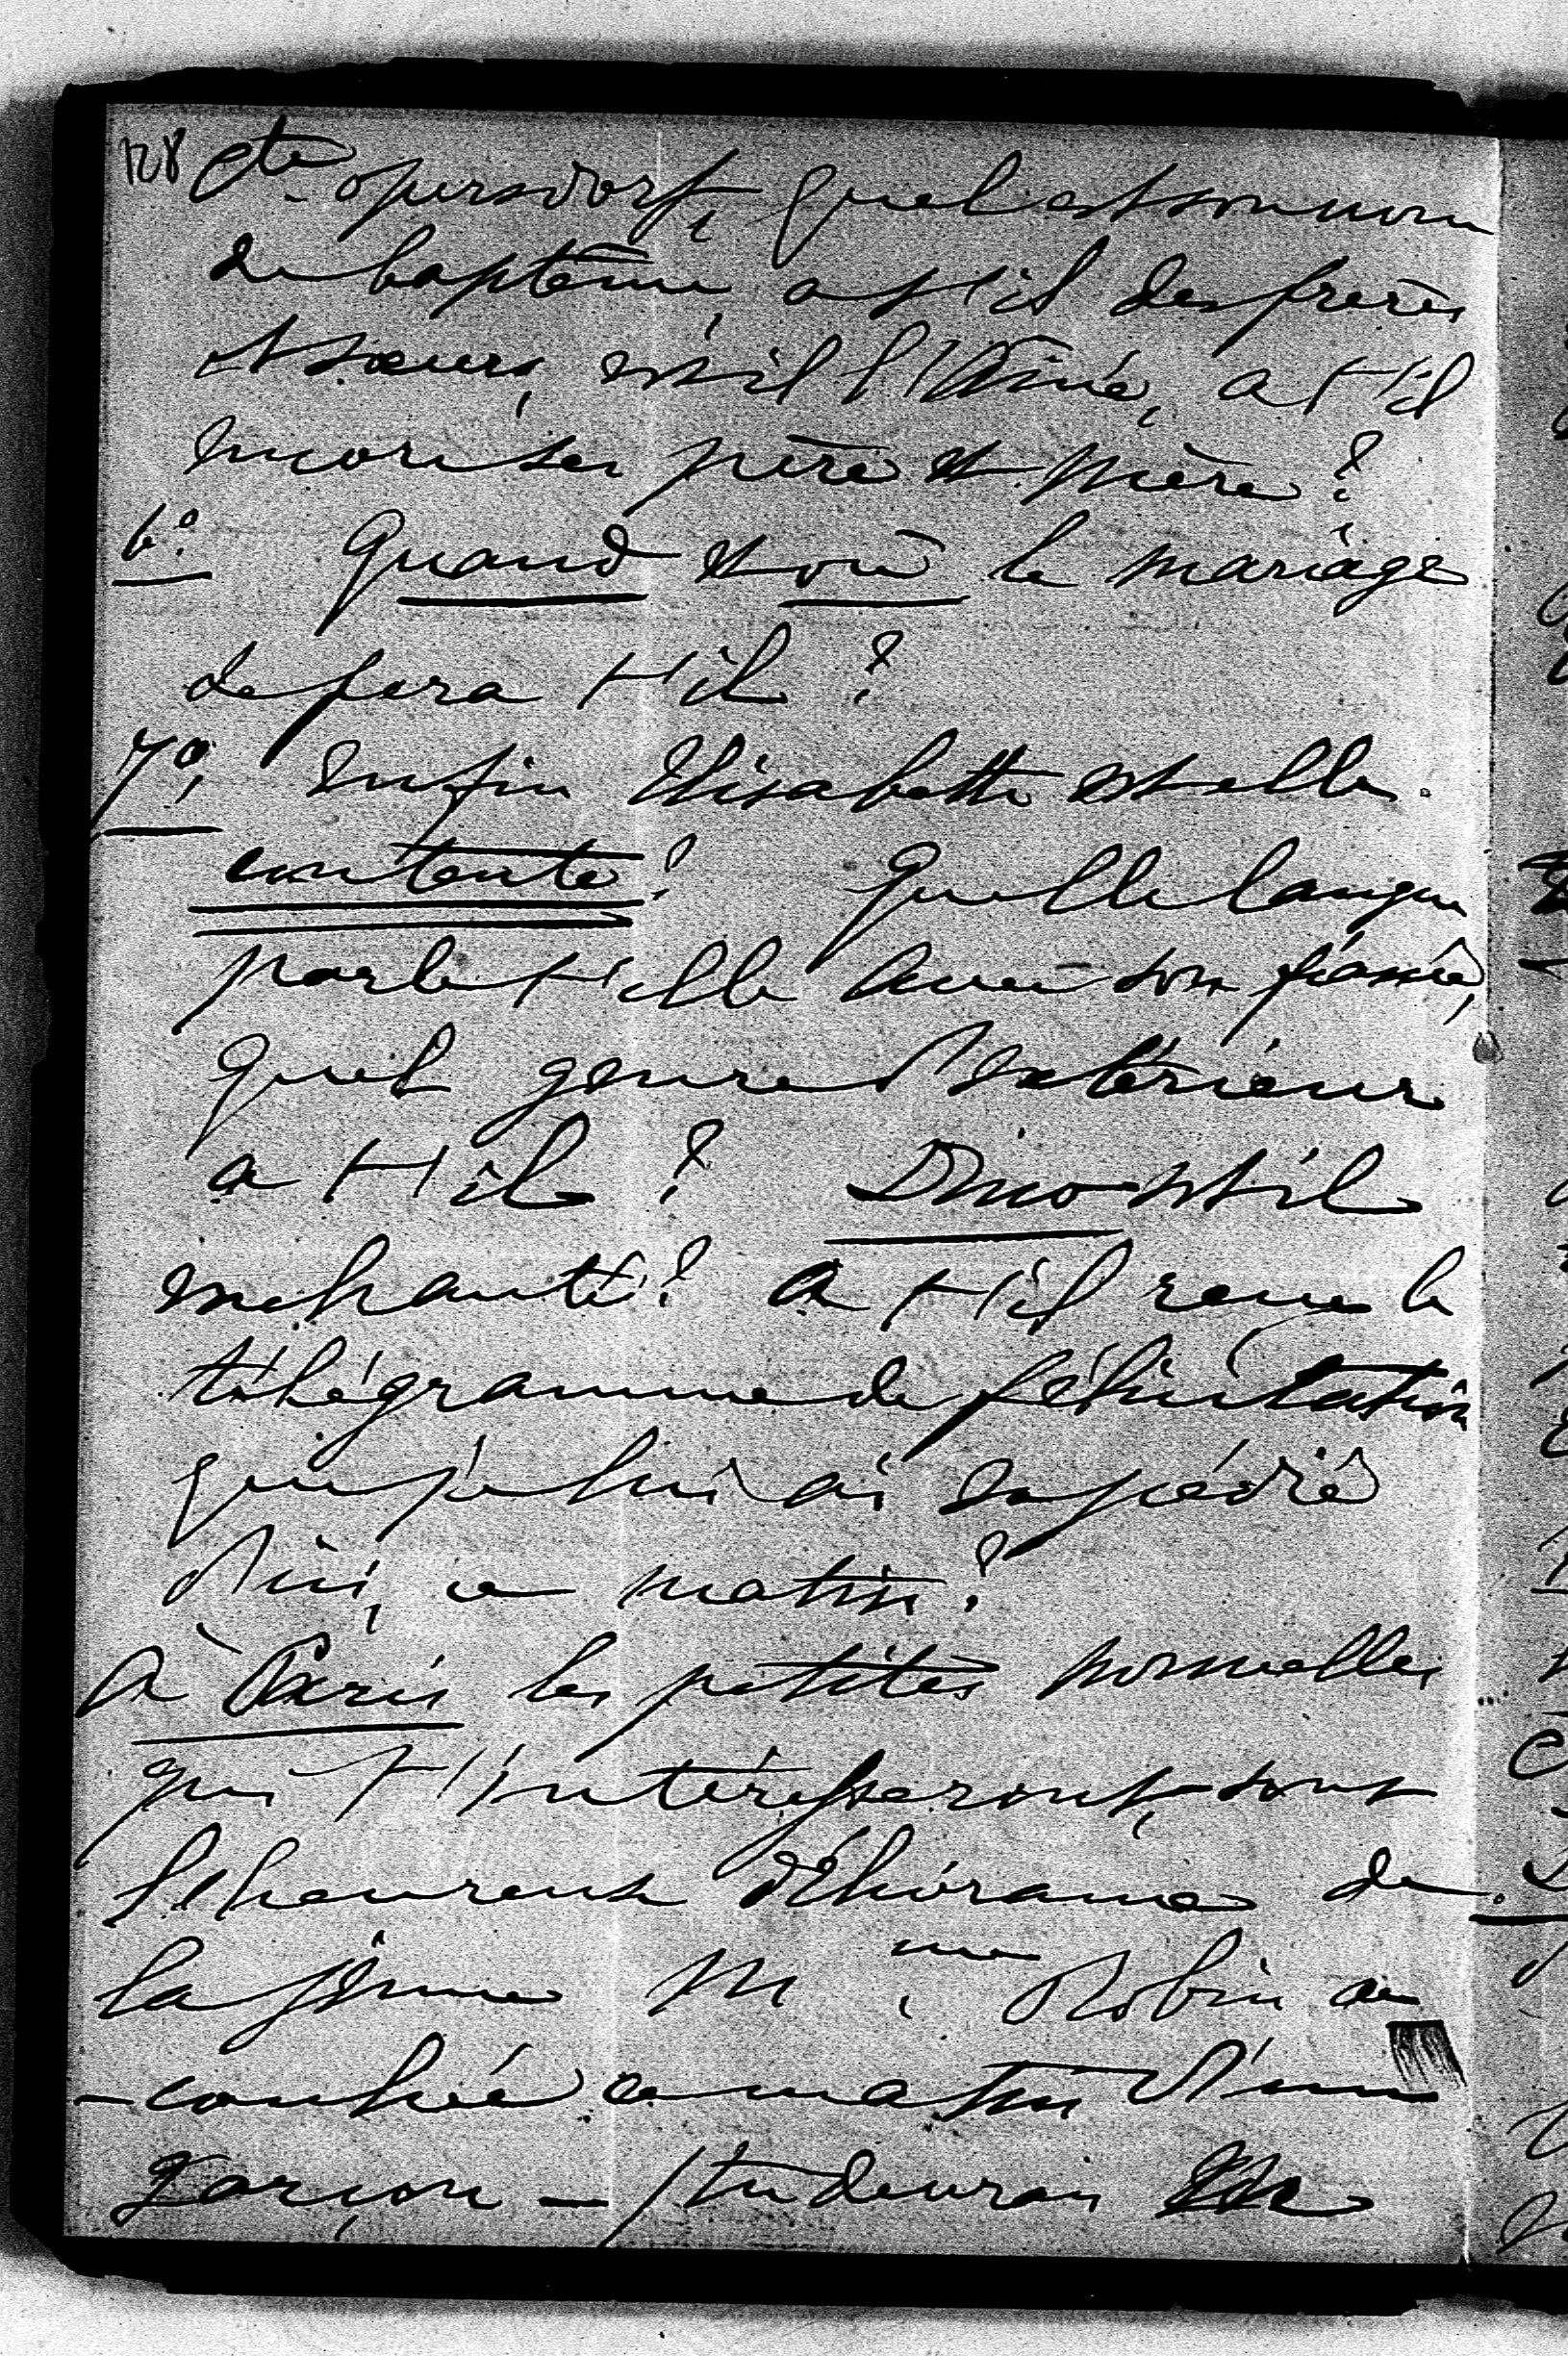 128 Cte Opersdorf, quel est son nom
de baptême, a t'il des frères
et sœurs, est il l'Ainé, a t'il
encore ses père et mère?
6o. Quand et où le mariage
se fera t'il?
7o. Enfin Elisabeth est elle
contente? Quelle langue
parle t'elle avec son fiancé,
quel genre d'extérieur
a t'il? Dino est il
enchanté? a t'il reçu le
télégramme de félicitation
que je lui ai expédié
d'ici, ce matin?
à Paris les petites nouvelles
qui t'intéresseront, sont
l'heureuse délivrance de
la jeune Mme Robin ac
-couchée ce matin d'un
garçon - /tu devrais